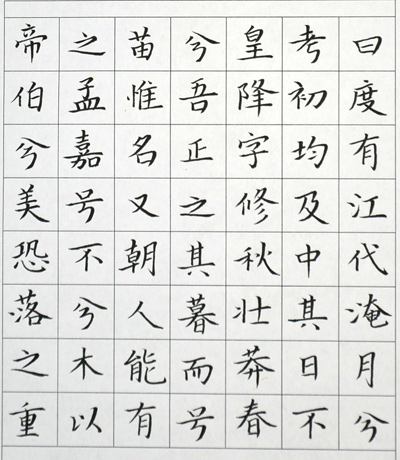 帝之苗兮皇考曰
伯孟惟吾降初度
兮嘉名正字均有
美号又之修及江
恐不朝其秋中代
落兮人暮壮其淹
之木能而莽日月
重以有号春不兮